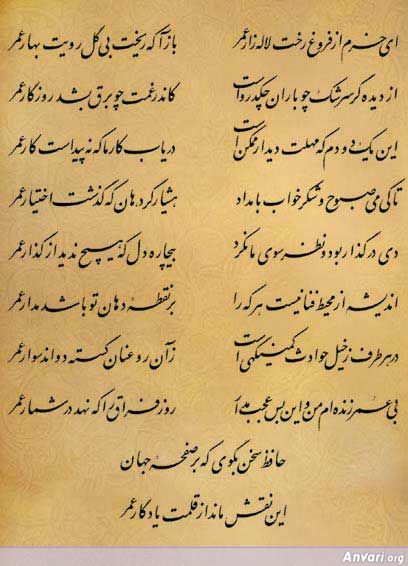 ای خرم از فروغ رخت لاله زار عمر بازآ که ریخت بی گل رویت بهار عمر
از دیده گر سرشک چو باران چکد رواست کاندر غمت چو برق بشد روزگار عمر
این یک دو دم که مهلت دیدار ممکن است دریاب کار ما که نه پیداست کار عمر
تا کی می صبوح و شکر خواب بامداد هشیار گرد هان که گذشت اختیار عمر
دی در گذار بود و نظر سوی ما نکرد بیچاره دل که هیچ ندید از گذار عمر
اندیشه از محیط فنا نیست هر که را بر نقطه دهان تو باشد مدار عمر
در هر طرف ز خیل حوادث کمینگهی است زان رو عنان گسسته دواند سوار عمر
بی عمر زنده ام من و این بس عجب مدار روز فراق را که نهد در شمار عمر
حافظ سخن بگوی که بر صفحه جهان
این نقش ماند از قلمت یادگار عمر
Anvari.org